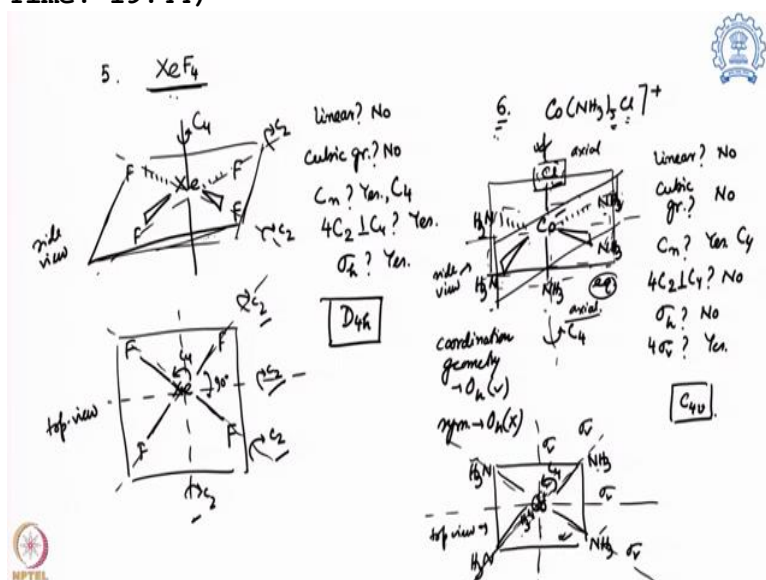 Time: 19:44)
5. XeF4
C4
C2
F
F
Xe
F
F
C2
side view
linear? No
Cubic gr.? No
Cn? Yes, C4
4C2 ⊥ C4? Yes.
σh? Yes.
D4h
C2
F
F
C4
Xe
90°
C2
F
F
C2
C2
top-view
6. Co(NH3)5Cl]+
axial
Cl
H3N
NH3
Co
H3N
NH3
NH3
eq
side view
axial
C4
linear? No
Cubic gr.? No
Cn? Yes C4
4C2 ⊥ C4? No
σh? No
4σv? Yes.
C4v
coordination geometry
→ Oh(✓)
sym → Oh(X)
σv
σv
H3N
NH3
C4
σv
top view →
H3N
NH3
σv
NPTEL